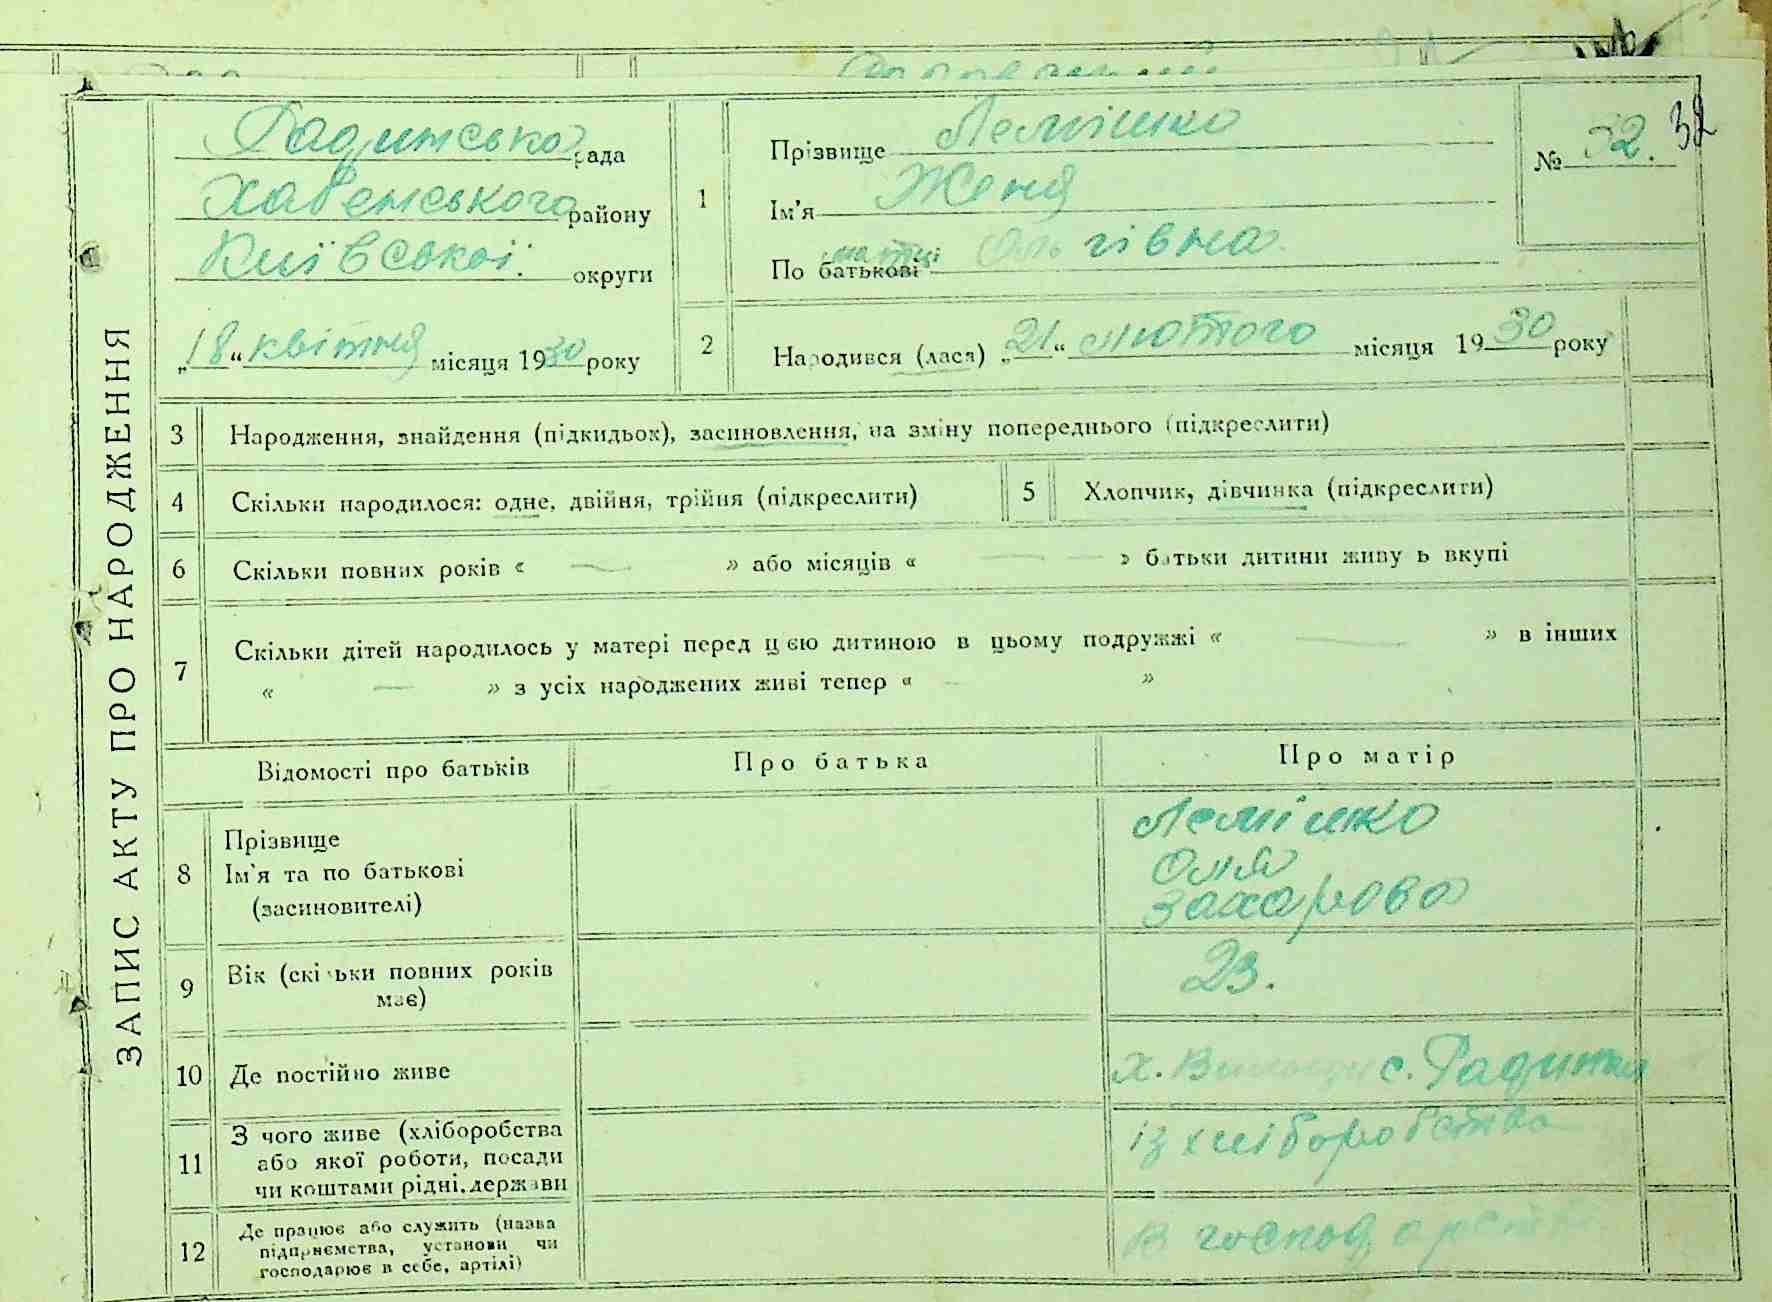 ЗАПИС АКТУ ПРО НАРОДЖЕННЯ
Радинська рада
Хабенського району
Київської округи
„18“ квітня місяця 1930 року
1
Прізвище Лемішко
Ім'я Женя
матці
По батькові Ольгівна
№ 32. 32
2
Народився (лася) „21“ лютого місяця 1930 року
3 Народження, знайдення (підкидьок), засиновлення, на зміну попереднього (підкреслити)
4 Скільки народилося: одне, двійня, трійня (підкреслити)
5 Хлопчик, дівчинка (підкреслити)
6 Скільки повних років « — » або місяців « — — » батьки дитини живу ь вкупі
7 Скільки дітей народилось у матері перед цією дитиною в цьому подружжі « — » в інших
« — » з усіх народжених живі тепер « — »
Відомості про батьків Про батька Про матір
8 Прізвище
Ім'я та по батькові
(засиновителі)
Лемішко
Оля
Захарова
9 Вік (скільки повних років
має)
23.
10 Де постійно живе
х. с. Радинка
11 З чого живе (хліборобства
або якої роботи, посади
чи коштами рідні, держави
із хліборобства
12 Де працює або служить (назва
підприємства, установи чи
господарює в себе, артілі)
в господарстві